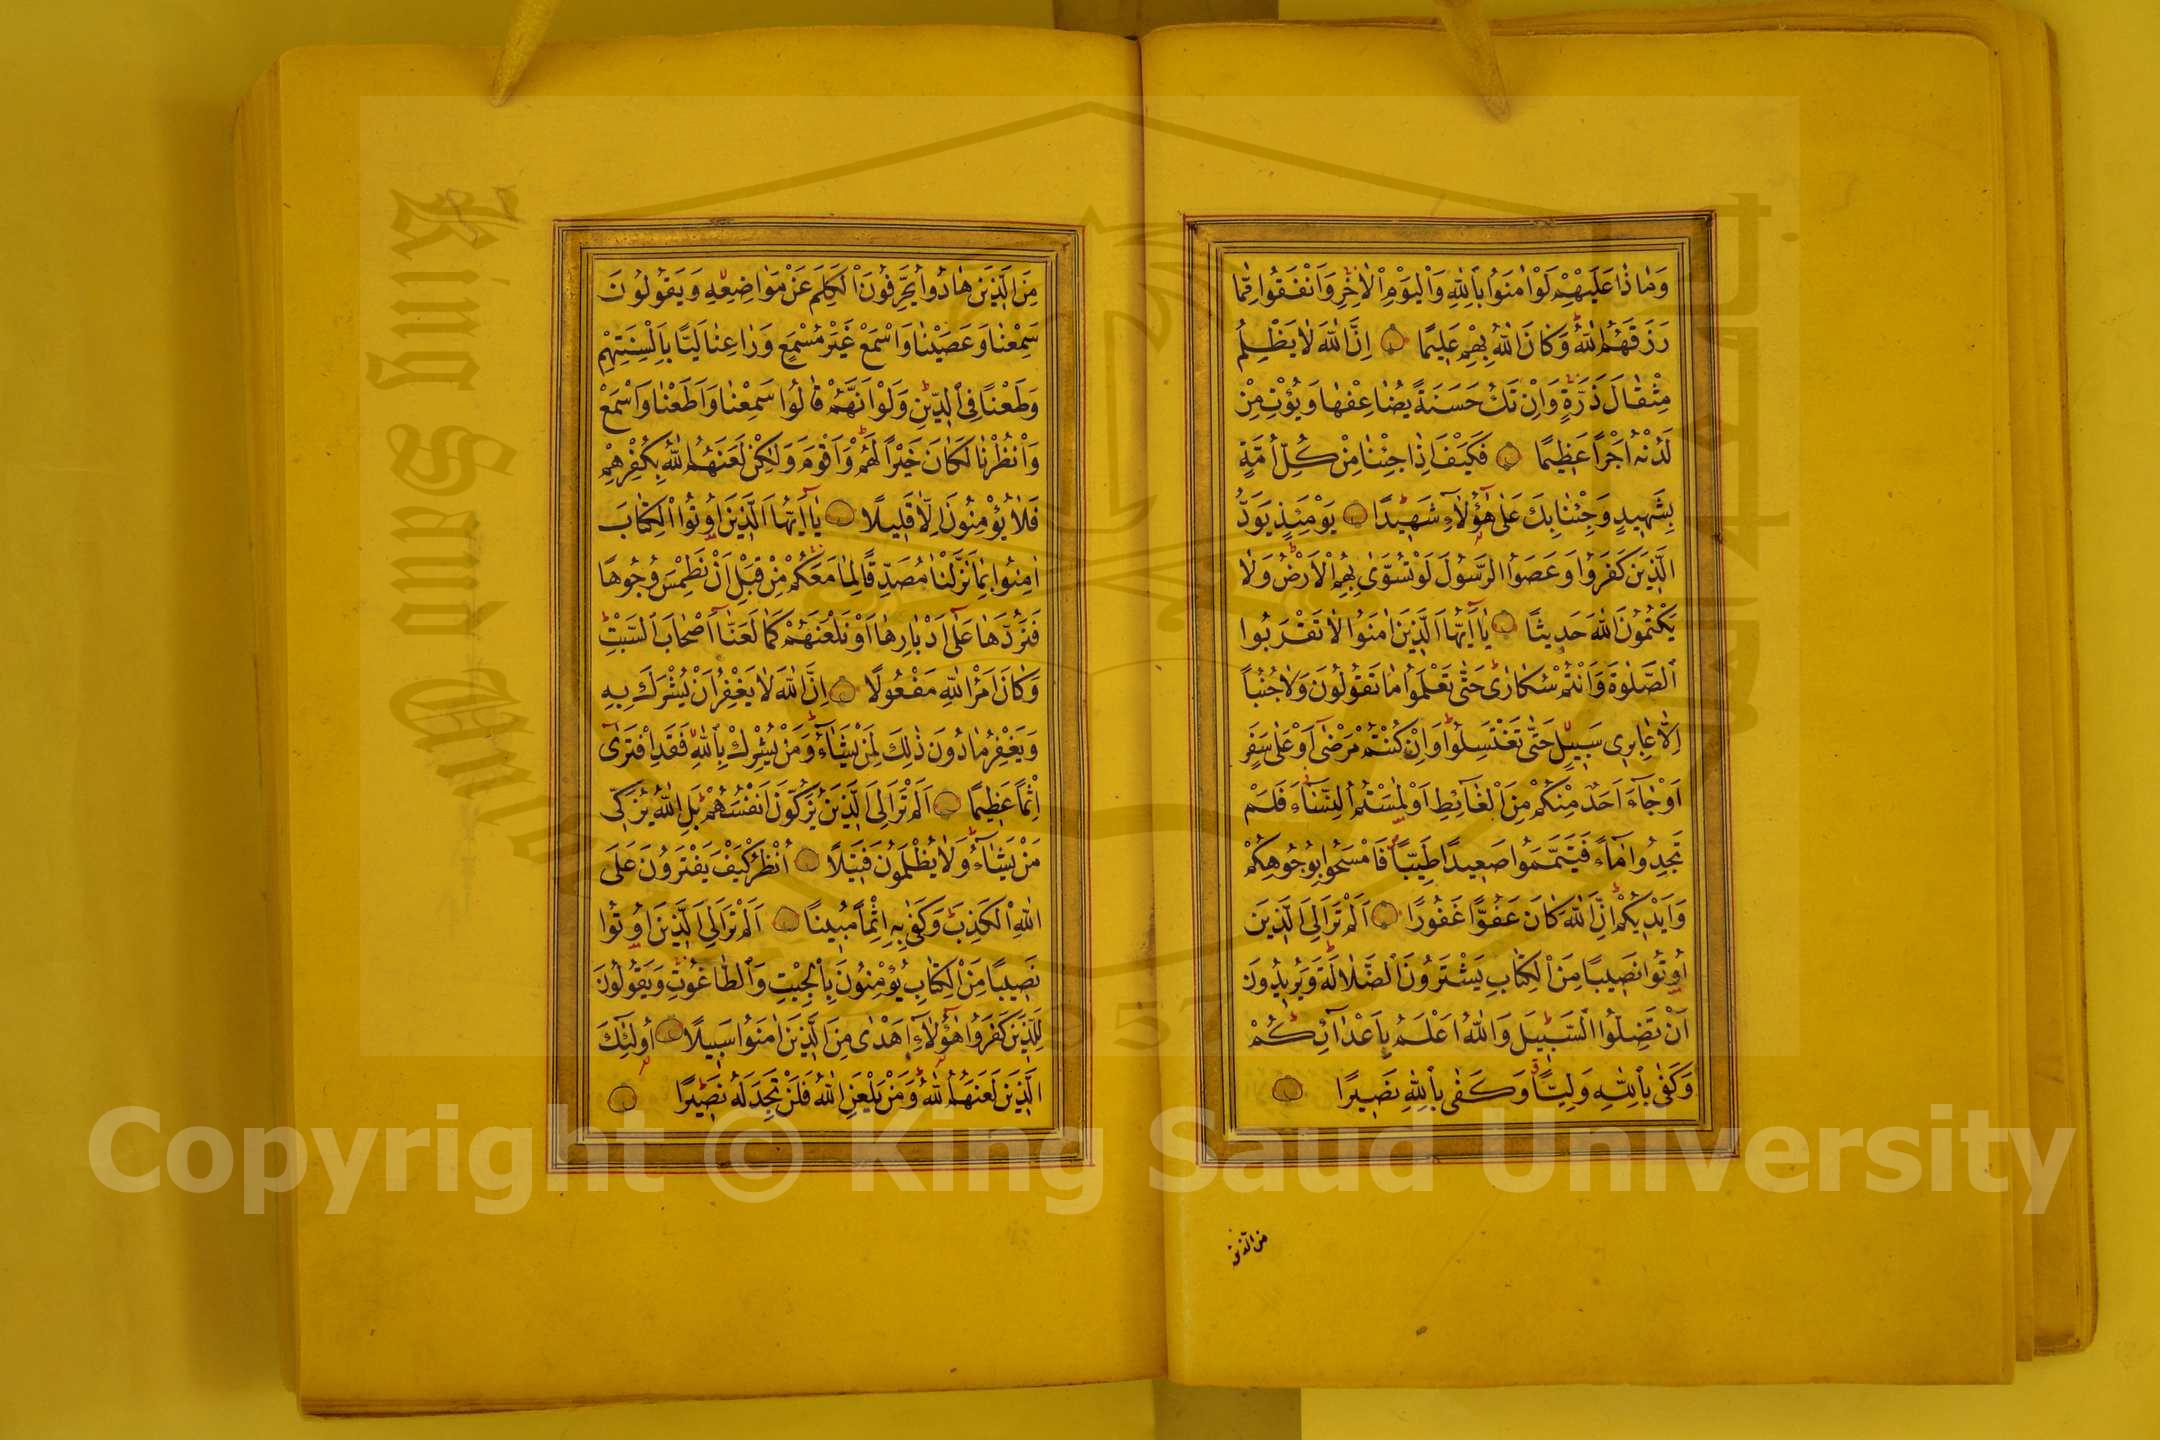 وَمَاذَا عَلَيْهِمْ لَوْ اٰمَنُوا بِاللّٰهِ وَالْيَوْمِ الْاٰخِرِ وَاَنْفَقُوا مِمَّا
رَزَقَهُمُ اللّٰهُ وَكَانَ اللّٰهُ بِهِمْ عَلِيمًا اِنَّ اللّٰهَ لَا يَظْلِمُ
مِثْقَالَ ذَرَّةٍ وَاِنْ تَكُ حَسَنَةً يُضَاعِفْهَا وَيُؤْتِ مِنْ
لَدُنْهُ اَجْرًا عَظِيمًا فَكَيْفَ اِذَا جِئْنَا مِنْ كُلِّ اُمَّةٍ
بِشَهِيدٍ وَجِئْنَا بِكَ عَلٰى هٰٓؤُلَاۤءِ شَهِيدًا يَوْمَئِذٍ يَوَدُّ
الَّذِينَ كَفَرُوا وَعَصَوُا الرَّسُولَ لَوْ تُسَوّٰى بِهِمُ الْاَرْضُ وَلَا
يَكْتُمُونَ اللّٰهَ حَدِيثًا يَاۤ اَيُّهَا الَّذِينَ اٰمَنُوا لَا تَقْرَبُوا
الصَّلٰوةَ وَاَنْتُمْ سُكَارٰى حَتّٰى تَعْلَمُوا مَا تَقُولُونَ وَلَا جُنُبًا
اِلَّا عَابِرِي سَبِيلٍ حَتّٰى تَغْتَسِلُوا وَاِنْ كُنْتُمْ مَرْضٰىۤ اَوْ عَلٰى سَفَرٍ
اَوْ جَاۤءَ اَحَدٌ مِنْكُمْ مِنَ الْغَاۤئِطِ اَوْ لٰمَسْتُمُ النِّسَاۤءَ فَلَمْ
تَجِدُوا مَاۤءً فَتَيَمَّمُوا صَعِيدًا طَيِّبًا فَامْسَحُوا بِوُجُوهِكُمْ
وَاَيْدِيكُمْ اِنَّ اللّٰهَ كَانَ عَفُوًّا غَفُورًا اَلَمْ تَرَ اِلَى الَّذِينَ
اُوتُوا نَصِيبًا مِنَ الْكِتَابِ يَشْتَرُونَ الضَّلَالَةَ وَيُرِيدُونَ
اَنْ تَضِلُّوا السَّبِيلَ وَاللّٰهُ اَعْلَمُ بِاَعْدَاۤئِكُمْ
وَكَفٰى بِاللّٰهِ وَلِيًّا وَكَفٰى بِاللّٰهِ نَصِيرًا
من الذين
مِنَ الَّذِينَ هَادُوا يُحَرِّفُونَ الْكَلِمَ عَنْ مَوَاضِعِهِ وَيَقُولُونَ
سَمِعْنَا وَعَصَيْنَا وَاسْمَعْ غَيْرَ مُسْمَعٍ وَرَاعِنَا لَيًّا بِاَلْسِنَتِهِمْ
وَطَعْنًا فِي الدِّينِ وَلَوْ اَنَّهُمْ قَالُوا سَمِعْنَا وَاَطَعْنَا وَاسْمَعْ
وَانْظُرْنَا لَكَانَ خَيْرًا لَهُمْ وَاَقْوَمَ وَلٰكِنْ لَعَنَهُمُ اللّٰهُ بِكُفْرِهِمْ
فَلَا يُؤْمِنُونَ اِلَّا قَلِيلًا يَاۤ اَيُّهَا الَّذِينَ اُوتُوا الْكِتَابَ
اٰمِنُوا بِمَا نَزَّلْنَا مُصَدِّقًا لِمَا مَعَكُمْ مِنْ قَبْلِ اَنْ نَطْمِسَ وُجُوهًا
فَنَرُدَّهَا عَلٰىۤ اَدْبَارِهَا اَوْ نَلْعَنَهُمْ كَمَا لَعَنَّاۤ اَصْحَابَ السَّبْتِ
وَكَانَ اَمْرُ اللّٰهِ مَفْعُولًا اِنَّ اللّٰهَ لَا يَغْفِرُ اَنْ يُشْرَكَ بِهِ
وَيَغْفِرُ مَا دُونَ ذٰلِكَ لِمَنْ يَشَاۤءُ وَمَنْ يُشْرِكْ بِاللّٰهِ فَقَدِ افْتَرٰىۤ
اِثْمًا عَظِيمًا اَلَمْ تَرَ اِلَى الَّذِينَ يُزَكُّونَ اَنْفُسَهُمْ بَلِ اللّٰهُ يُزَكِّي
مَنْ يَشَاۤءُ وَلَا يُظْلَمُونَ فَتِيلًا اُنْظُرْ كَيْفَ يَفْتَرُونَ عَلَى
اللّٰهِ الْكَذِبَ وَكَفٰى بِهِ اِثْمًا مُبِينًا اَلَمْ تَرَ اِلَى الَّذِينَ اُوتُوا
نَصِيبًا مِنَ الْكِتَابِ يُؤْمِنُونَ بِالْجِبْتِ وَالطَّاغُوتِ وَيَقُولُونَ
لِلَّذِينَ كَفَرُوا هٰٓؤُلَاۤءِ اَهْدٰى مِنَ الَّذِينَ اٰمَنُوا سَبِيلًا اُولٰئِكَ
الَّذِينَ لَعَنَهُمُ اللّٰهُ وَمَنْ يَلْعَنِ اللّٰهُ فَلَنْ تَجِدَ لَهُ نَصِيرًا
King Saud
1957
Copyright © King Saud University